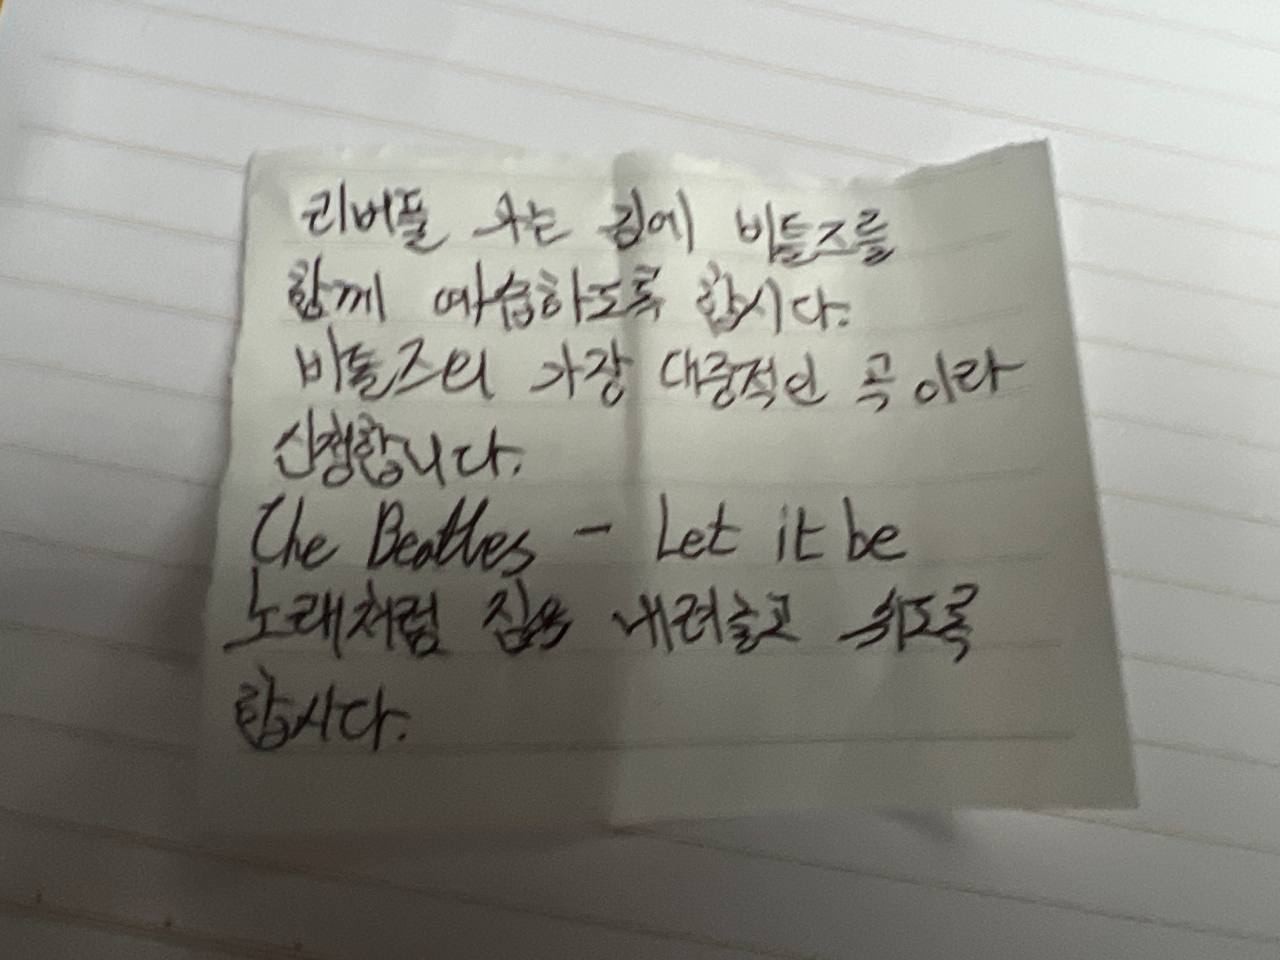 리버풀 우는 김에 비틀즈를
함께 예습하도록 합시다.
비틀즈의 가장 대중적인 곡이라
신청합니다.
The Beatles - Let it be
노래처럼 짐을 내려놓고 쉬도록
합시다.